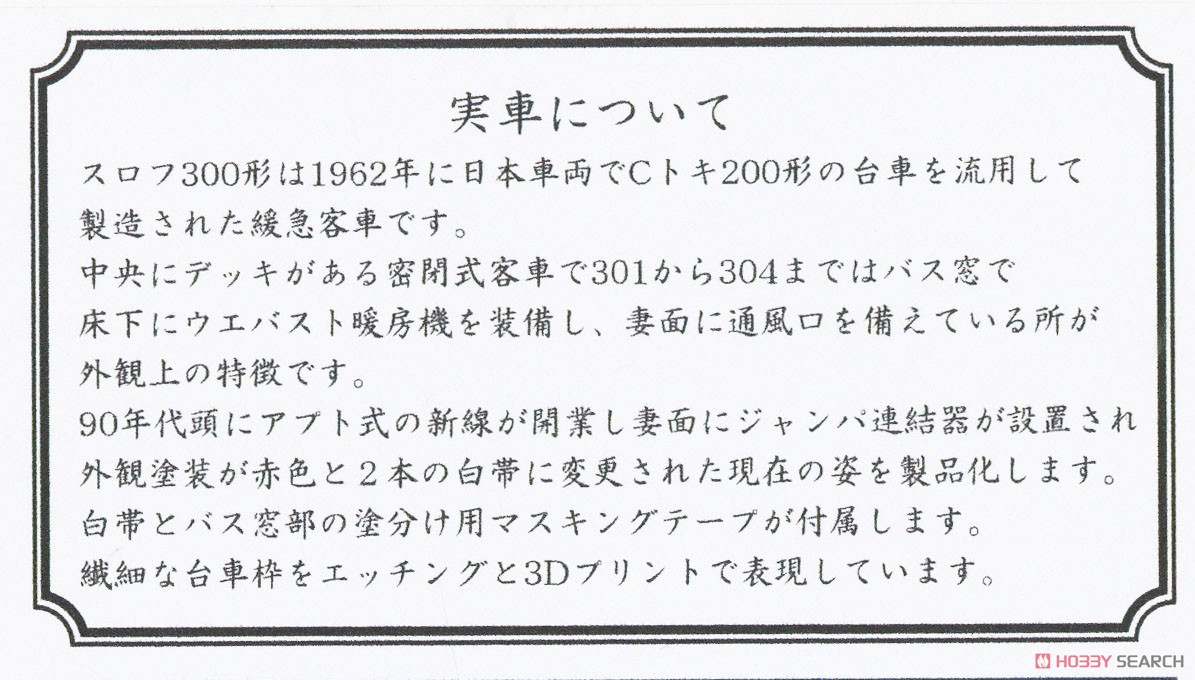 実車について
スロフ300形は1962年に日本車両でCトキ200形の台車を流用して
製造された緩急客車です。
中央にデッキがある密閉式客車で301から304まではバス窓で
床下にウエバスト暖房機を装備し、妻面に通風口を備えている所が
外観上の特徴です。
90年代頭にアプト式の新線が開業し妻面にジャンパ連結器が設置され
外観塗装が赤色と２本の白帯に変更された現在の姿を製品化します。
白帯とバス窓部の塗分け用マスキングテープが付属します。
繊細な台車枠をエッチングと3Dプリントで表現しています。
HOBBY SEARCH